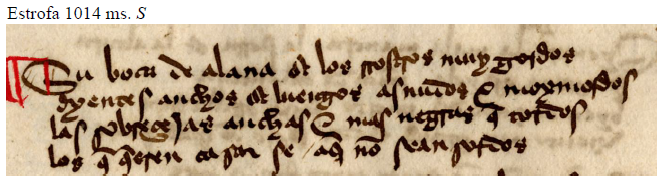 Estrofa 1014 ms. S
Su boca de alana et los rrostros muy gordos
dyentes anchos et luengos asnudos e moxmordos
las sobreçejas anchas e mas negras q tordos
los q quieren casar se aq no sean sordos